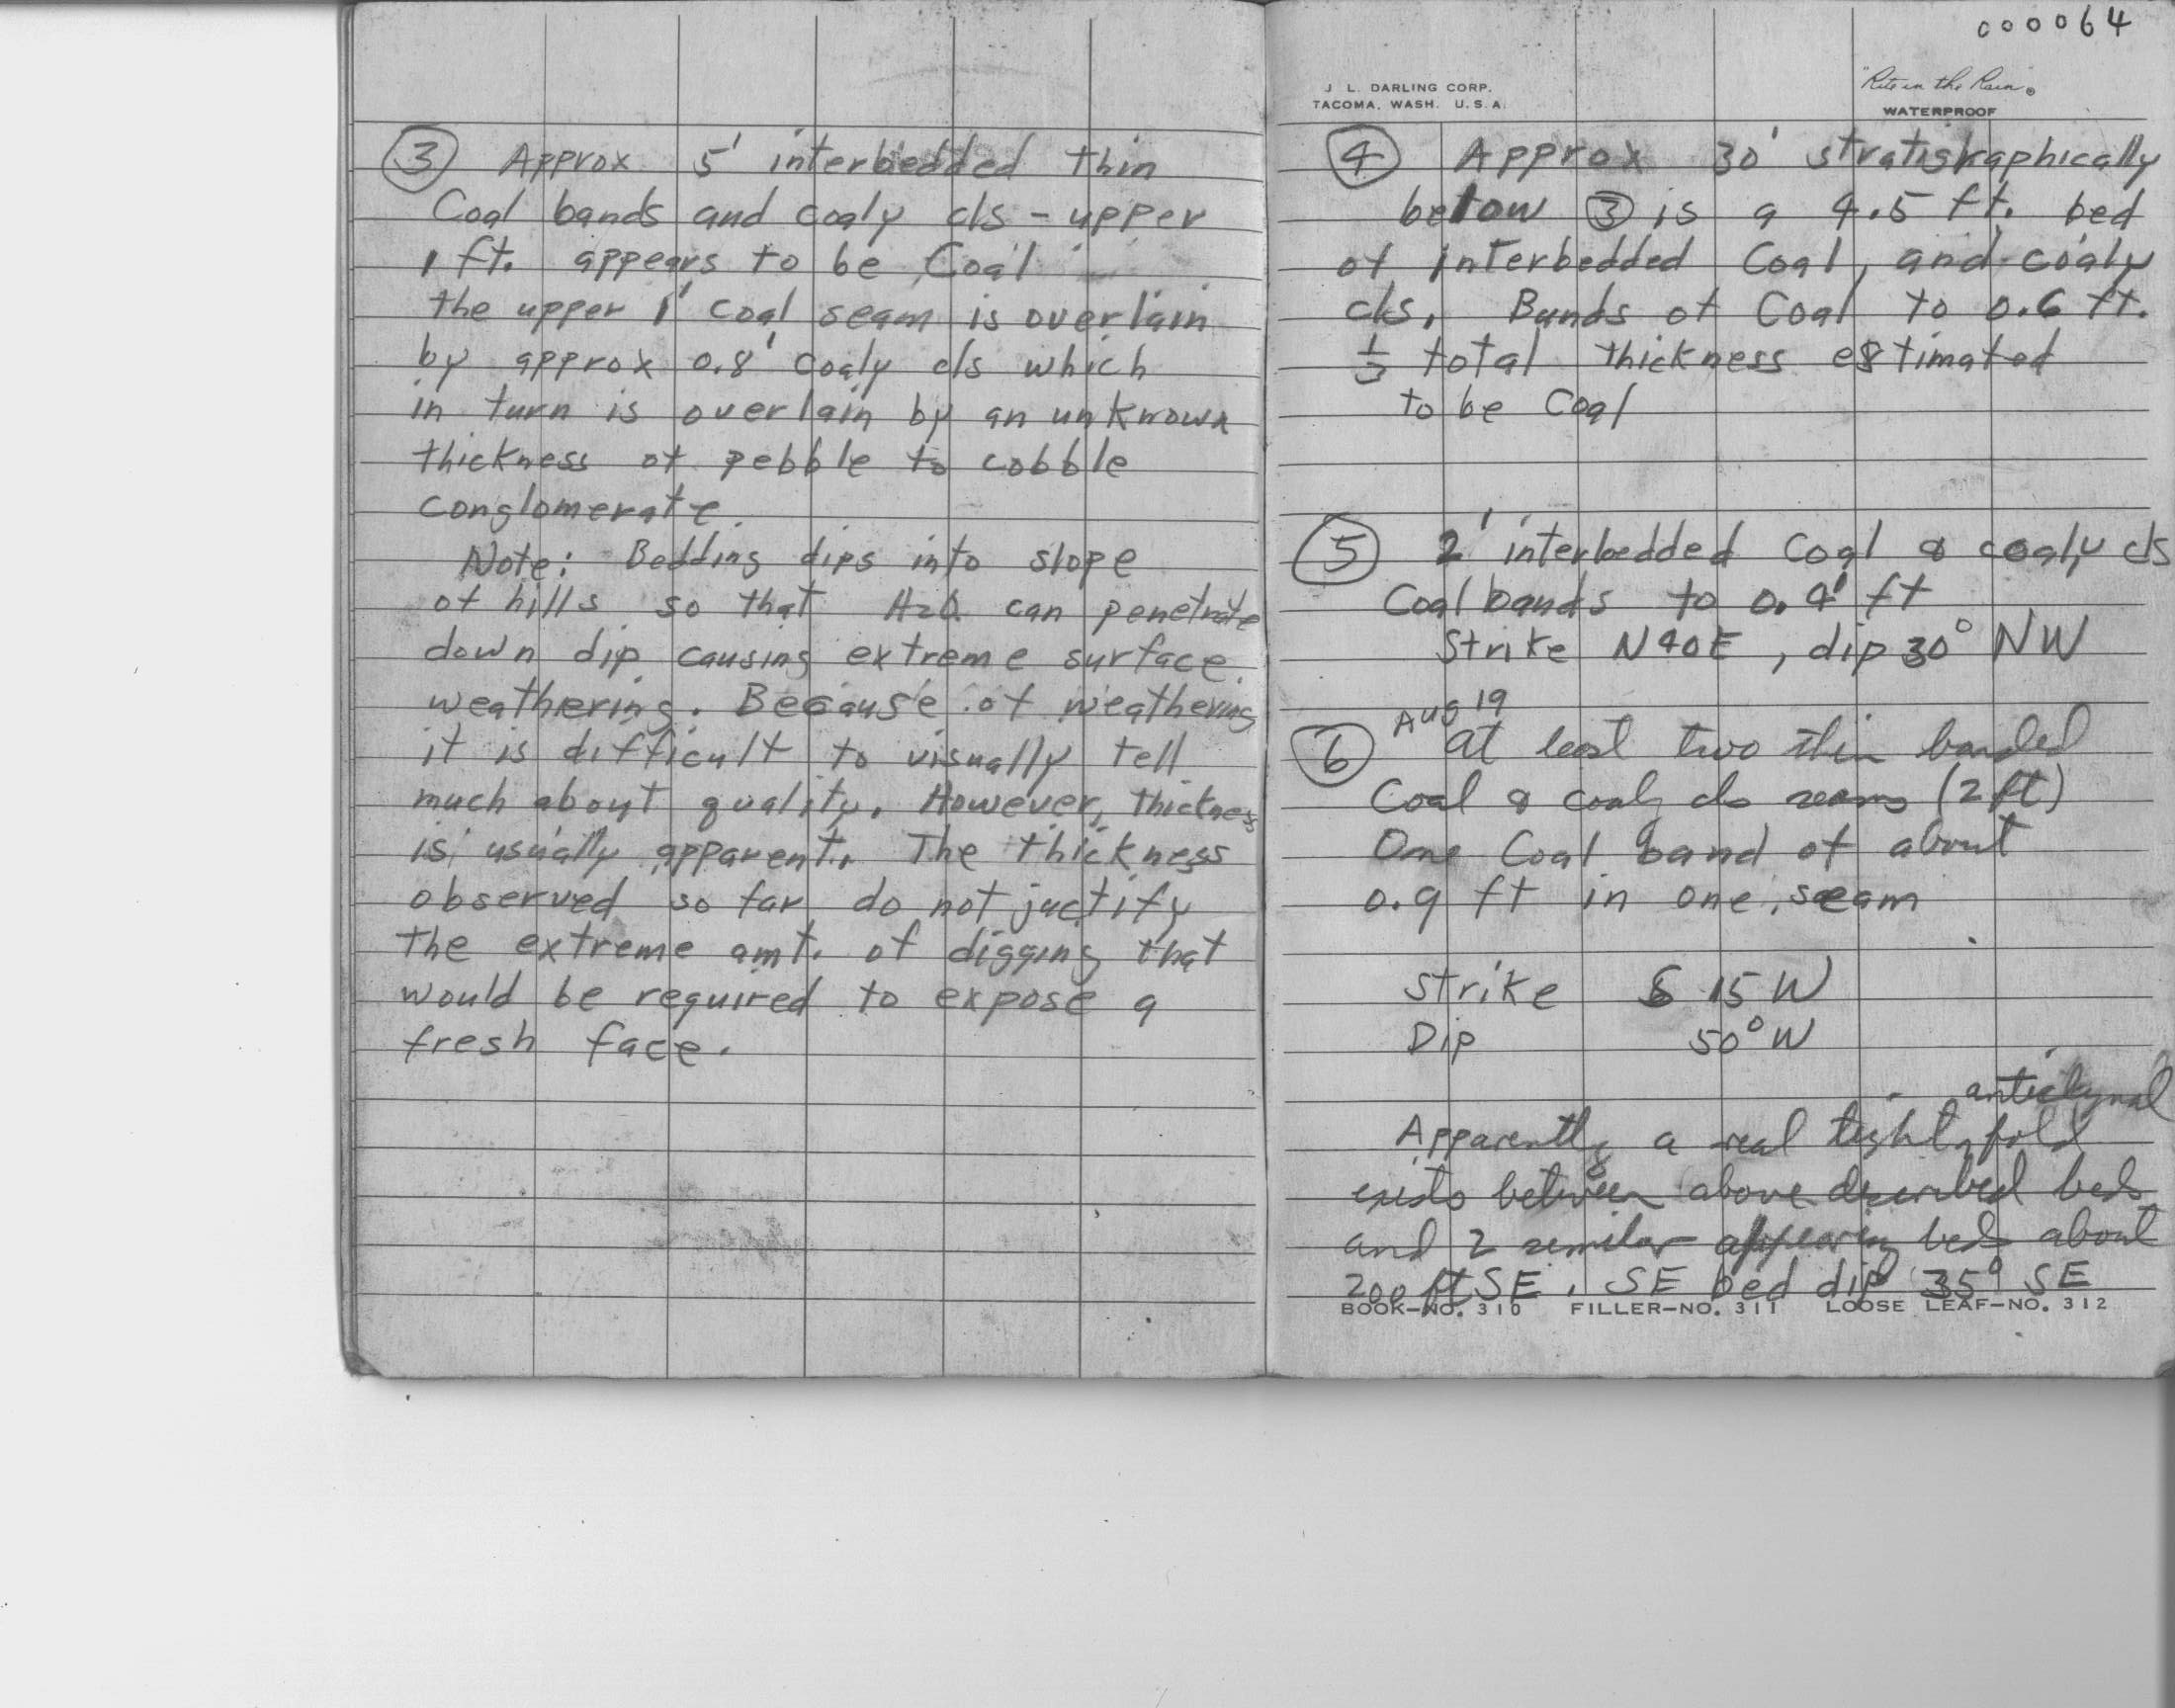 ③ Approx 5' interbedded thin
Coal bands and coaly cls - upper
1 ft. appears to be Coal
the upper 1' coal seam is overlain
by approx 0.8' coaly cls which
in turn is overlain by an unknown
thickness of pebble to cobble
conglomerate.
Note: Bedding dips into slope
of hills so that H2O can penetrate
down dip causing extreme surface
weathering. Because of weathering
it is difficult to visually tell
much about quality. However, thickness
is usually apparent. The thickness
observed so far do not justify
the extreme amt. of digging that
would be required to expose a
fresh face.
000064
J L. DARLING CORP.
TACOMA, WASH. U.S.A.
"Rite in the Rain"®
WATERPROOF
④ Approx 30' stratigraphically
below ③ is a 4.5 ft. bed
of interbedded Coal, and coaly
cls. Bands of Coal to 0.6 ft.
1/3 total thickness estimated
to be Coal
⑤ 2' interbedded Coal & coaly cls
Coal bands to 0.4' ft
Strike N40E, dip 30° NW
Aug 19
⑥ at least two thin banded
Coal & coaly cls seams (2 ft)
One Coal band of about
0.9 ft in one seam
Strike S 15 W
Dip 50° W
anticlynal
Apparently a real tight fold
exists between above described beds
and 2 similar appearing beds about
200 ft SE. SE bed dip 35° SE
BOOK-NO. 310 FILLER-NO. 311 LOOSE LEAF-NO. 312